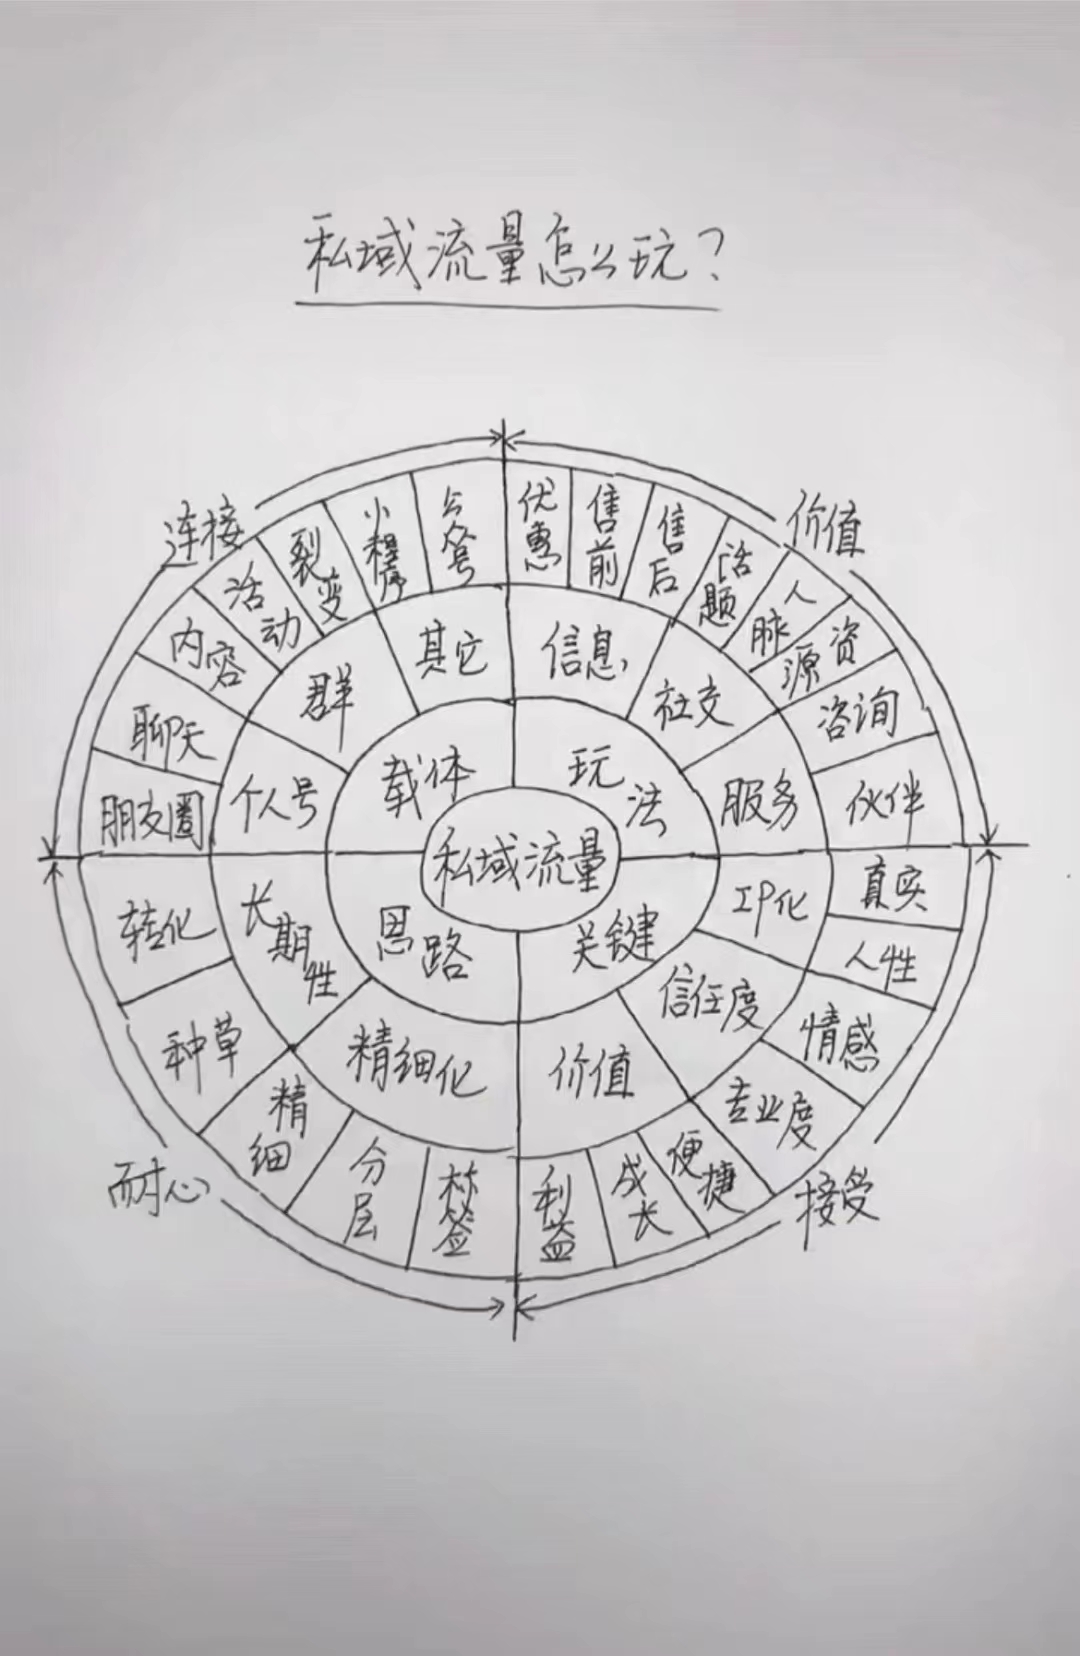 私域流量怎么玩?
连接
价值
耐心
接受
私域流量
载体
玩法
思路
关键
个人号
群
其它
信息
社交
服务
IP化
信任度
价值
精细化
长期性
朋友圈
聊天
内容
活动
裂变
小程序
公众号
优惠
售前
售后
话题
人脉
资源
咨询
伙伴
真实
人性
情感
专业度
便捷
成长
利益
标签
分层
精细
种草
转化